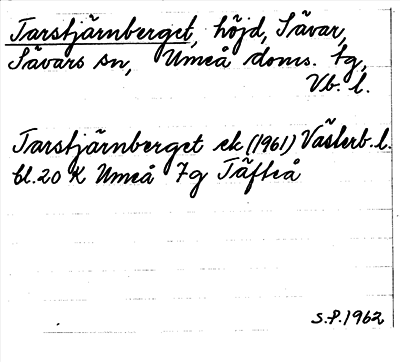 Tarstjärnberget, höjd, Sävar,
Sävars sn, Umeå doms. tg,
Vb. l.
Tarstjärnberget ek (1961) Västerb. l.
bl. 20 K Umeå 7g Täfteå
S.P. 1962